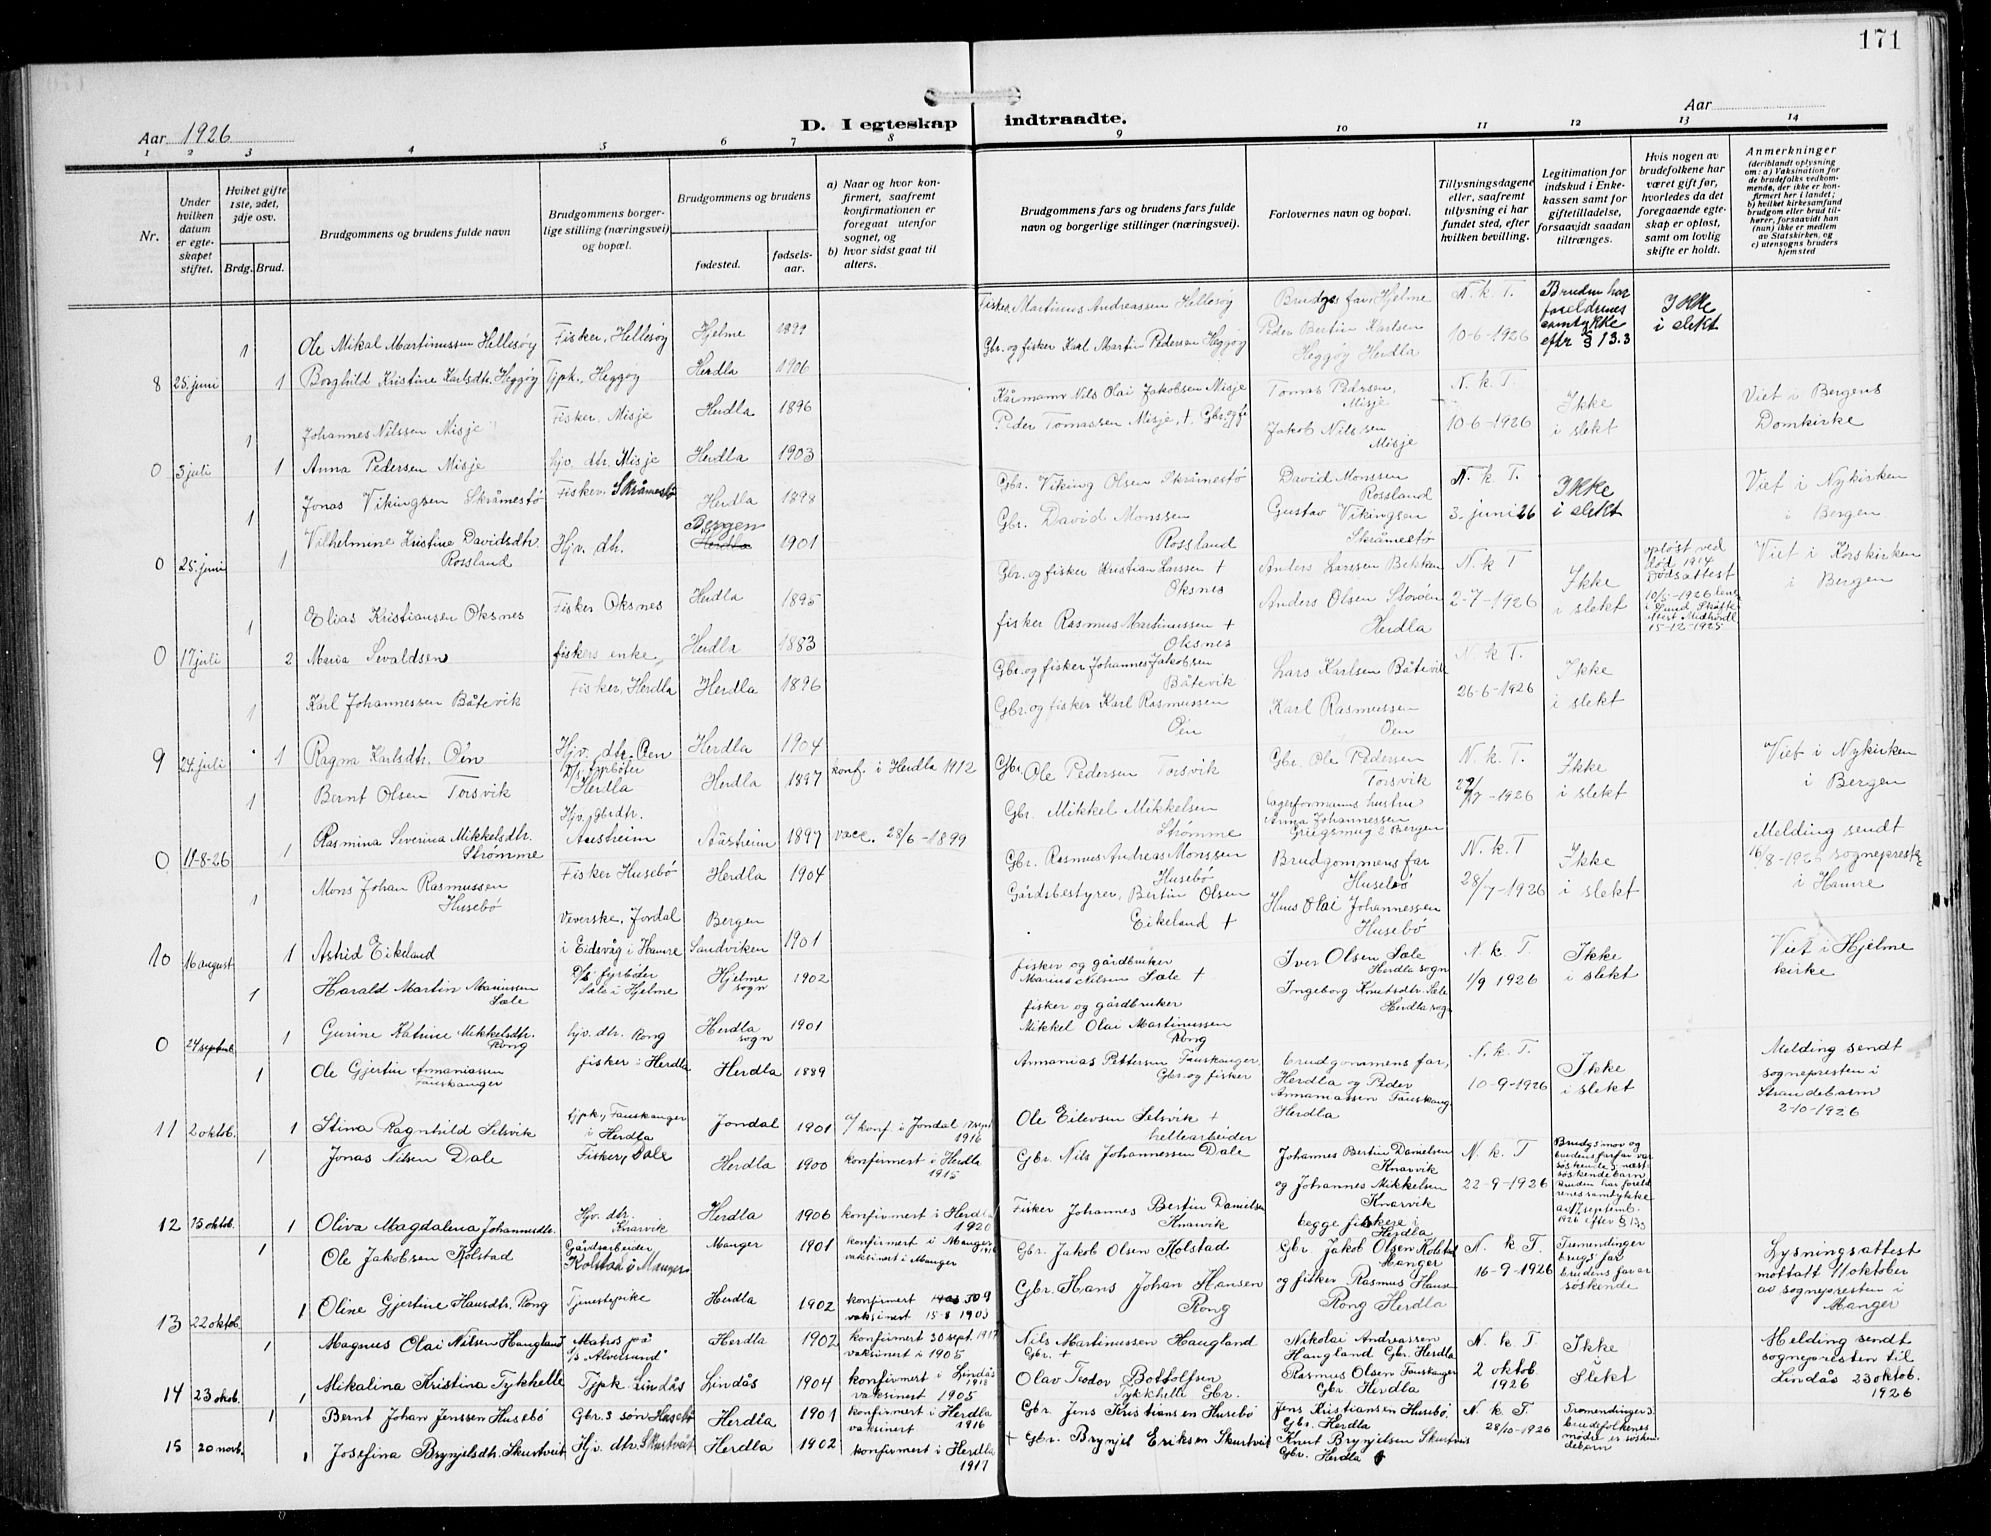 171
Aar 1926
D. I egteskap
indtraadte.
Aar
1 2 3 4 5 6 7 8 9 10 11 12 13 14
Nr.
Under hvilken datum er egteskapet stiftet.
Hviket gifte 1ste, 2det, 3dje osv.
Brdg. Brud.
Brudgommens og brudens fulde navn
Brudgommens borgerlige stilling (næringsvei) og bopæl.
Brudgommens og brudens
fødested.
fødselsaar.
a) Naar og hvor konfirmert, saafremt konfirmationen er foregaat utenfor sognet, og
b) hvor sidst gaat til alters.
Brudgommens fars og brudens fars fulde navn og borgerlige stillinger (næringsvei).
Forlovernes navn og bopæl.
Tillysningsdagene eller, saafremt tillysning ei har fundet sted, efter hvilken bevilling.
Legitimation for indskud i Enkekassen samt for giftetilladelse, forsaavidt saadan tiltrænges.
Hvis nogen av brudefolkene har været gift før, hvorledes da det foregaaende egteskap er opløst, samt om lovlig skifte er holdt.
Anmerkninger
(deriblandt oplysning om: a) Vaksination for de brudefolks vedkommende, der ikke er konfirmert her i landet; b) hvilket kirkesamfund brudgom eller brud tilhører, forsaavidt han (hun) ikke er medlem av Statskirken, og c) utensogns bruders hjemsted
1 Ole Mikal Martinussen Hellesøy Fisker, Hellesøy Hjelme 1899 Fisker Martinus Andreassen Hellesøy Brudges far, Hjelme N. k. T. Bruden har foreldrenes samtykke efter § 13.3 Ikke i slekt
8 25. juni 1 Borghild Kristine Karlsdtr. Heggøy Tjpk., Heggøy Herdla 1906 Gbr. og fisker Karl Martin Pedersen Heggøy Peder Bertin Karlsen Heggøy Herdla 10-6-1926
1 Johannes Nilssen Misje Fisker, Misje Herdla 1896 Kårmann Nils Olai Jakobsen Misje Tomas Petersen, Misje N. k. T. Ikke i slekt Viet i Bergens Domkirke
0 3 juli 1 Anna Pedersen Misje hjv. dtr. Misje Herdla 1903 Peder Tomassen Misje, + Gbr. og fi Jakob Nilssen Misje 10-6-1926
1 Jonas Vikingsen Skråmestø Fisker Skråmestø Herdla 1898 Gbr. Viking Olsen Skråmestø David Monssen Rossland N. k. T. Ikke i slekt Viet i Nykirken i Bergen
0 25. juni 1 Vilhelmine Kristine Davidsdtr. Rossland Hjv. dtr. Bergen Herdla 1901 Gbr. David Monssen Rossland Gustav Vikingsen Skråmestø 3. juni 26
1 Elias Kristiansen Oksnes Fisker Oksnes Herdla 1895 Gbr. og fisker Kristian Larssen + Oksnes Anders Larssen N. k. T Ikke i slekt opløst ved død 1914 Dødsattest 10/5-1926 15-12-1925 Viet i Korskirken i Bergen
0 17 juli 2 Maria Sevaldsen fiskers enke Herdla 1883 fisker Rasmus Martinussen + Oksnes Anders Olsen Storøen Herdla 2-7-1926
1 Karl Johannessen Båtevik Fisker, Herdla Herdla 1896 Gbr. og fisker Johannes Jakobsen Båtevik Lars Karlsen Båtevik N. k T. Ikke i slekt
9 24. juli 1 Ragna Karlsdtr. Øen Hjv. dtr. Øen Herdla 1904 Gbr. og fisker Karl Rasmussen Øen Karl Rasmussen Øen 26-6-1926
1 Bernt Olsen Torsvik D/s fyrbøter Herdla Herdla 1897 konf. i Herdla 1912 Gbr. Ole Pedersen Torsvik Gbr. Ole Pedersen Torsvik N. k. T. Ikke i slekt Viet i Nykirken i Bergen
0 11-8-26 1 Rasmina Severina Mikkelsdtr. Strømme Hjv., gbrdtr. Aarsheim 1897 vacc. 28/6-1899 Gbr. Mikkel Mikkelsen Strømme Lagerformanns hustru Anna Johannessen 2 Bergen /7-1926
1 Mons Johan Rasmussen Husebø Fisker Husebø Herdla 1904 Gbr. Rasmus Andreas Monssen Husebø Brudgommens far Husebø N. k. T Ikke i slekt Melding sendt 16/8-1926 sogneprest i Hamre
10 16 august 1 Astrid Eikeland Veverske, Jordal i Eidsvåg i Hamre Bergen Sandviken 1901 Gårdsbestyrer, Bertin Olsen Eikeland + Hans Olai Johannessen Husebø 28/7-1926
1 Harald Martin Mariussen Sæle D/s fyrbøter Sæle i Hjelme Hjelme sogn 1902 fisker og gårdbruker Marius Nilsen Sæle + Iver Olsen Sæle Herdla sogn N. k. T. Ikke i slekt Viet i Hjelme kirke
0 24 septemb. 1 Gurine Katrine Mikkelsdtr. Rong hjv. dtr. Rong Herdla sogn 1901 fisker og gårdbruker Mikkel Olai Martinussen Rong Ingeborg Knutsdtr. Sæle Herdla sogn 1/9 1926
1 Ole Gjertin Annaniassen Fauskanger fisker i Herdla Herdla 1889 Annanias Pettersen Fauskanger, Gbr. og fisker brudgommens far, Herdla og Peder Annaniassen Fauskang. Herdla N. k. T. 10-9-1926 Ikke i slekt Melding sendt sognepresten i Strandebarm 2-10-1926
11 2 oktob. 1 Stina Ragnhild Selsvik tjpk., Fauskanger i Herdla Jondal 1901 konf. i Jondal 1916 Ole Eilevsen Selsvik + hellearbeider
1 Jonas Nilsen Dale Fisker, Dale Herdla 1900 konfirmert i Herdla 1915 Gbr. Nils Johannessen Dale Johannes Bertin Danielsen Knarvik N. k. T Brudgs mor og brudens farfar var søskende : næst søskendebarn Bruden har foreldrenes samtykke av 17 septemb. 1926 efter § 13
12 15 oktob. 1 Oliva Magdalena Johannesdtr. Hjv. dtr. Knarvik Herdla 1906 konfirmert i Herdla 1920 Fisker Johannes Bertin Danielsen Knarvik og Johannes Mikkelsen Knarvik begge fiskere i Herdla 22-9-1926
1 Ole Jakobsen Kolstad Gårdsarbeider Kolstad i Manger Manger 1901 konfirmert i Manger vaksinert i Manger Gbr. Jakob Olsen Kolstad Gbr. Jakob Olsen Kolstad Manger N. k T. Tremendinger brugs' far brudens far er søskende Lysningsattest mottatt 11 oktober av sognepresten i Manger
13 22 oktob. 1 Oline Gjertine Hansdtr. Rong Tjenestepike Herdla 1902 konfirmert vaksinert 15-8 1903 Gbr. Hans Johan Hansen Rong og fisker Rasmus Hansen Rong Herdla 16-9-1926
1 Magnus Olai Nilsen Haugland Matros på D/s "Alversund" Herdla 1902 konfirmert 30 sept. 1917 vaksinert i 1905 Nils Martinussen Haugland Gbr. + Nikolai Andreassen Haugland Gbr. Herdla N. k. T. Ikke i Slekt Melding sendt sognepresten til Lindås 23 oktob. 1926
14 23 okob. 1 Mikalina Kristina Tykkhelle Tjpk. Lindås Lindås 1904 konfirmert i Lindås 1918 vaksinert 1905 Olav Teodor Bottolfsen Tykkhelle Gbr. Rasmus Olsen Fauskanger Gbr. Herdla 2 oktob. 1926
1 Bernt Johan Jenssen Husebø Gbr.s søn Husebø Herdla 1901 konfirmert i Herdla 1916 vaksinert Gbr. Jens Kristiansen Husebø Jens Kristiansen Husebø, Gbr. Herdla N. k. T. 28/10-1926 Tremendinger : brudefolkenes mødre er søskendebarn
15 20 novb. 1 Josefina Brynjelsdtr. Skurtveit Hjv. dtr. Skurtveit Herdla 1902 konfirmert i Herdla 1917 + Gbr. Brynjel Eriksen Skurtveit Knut Brynjelsen Skurtveit Gbr. Herdla